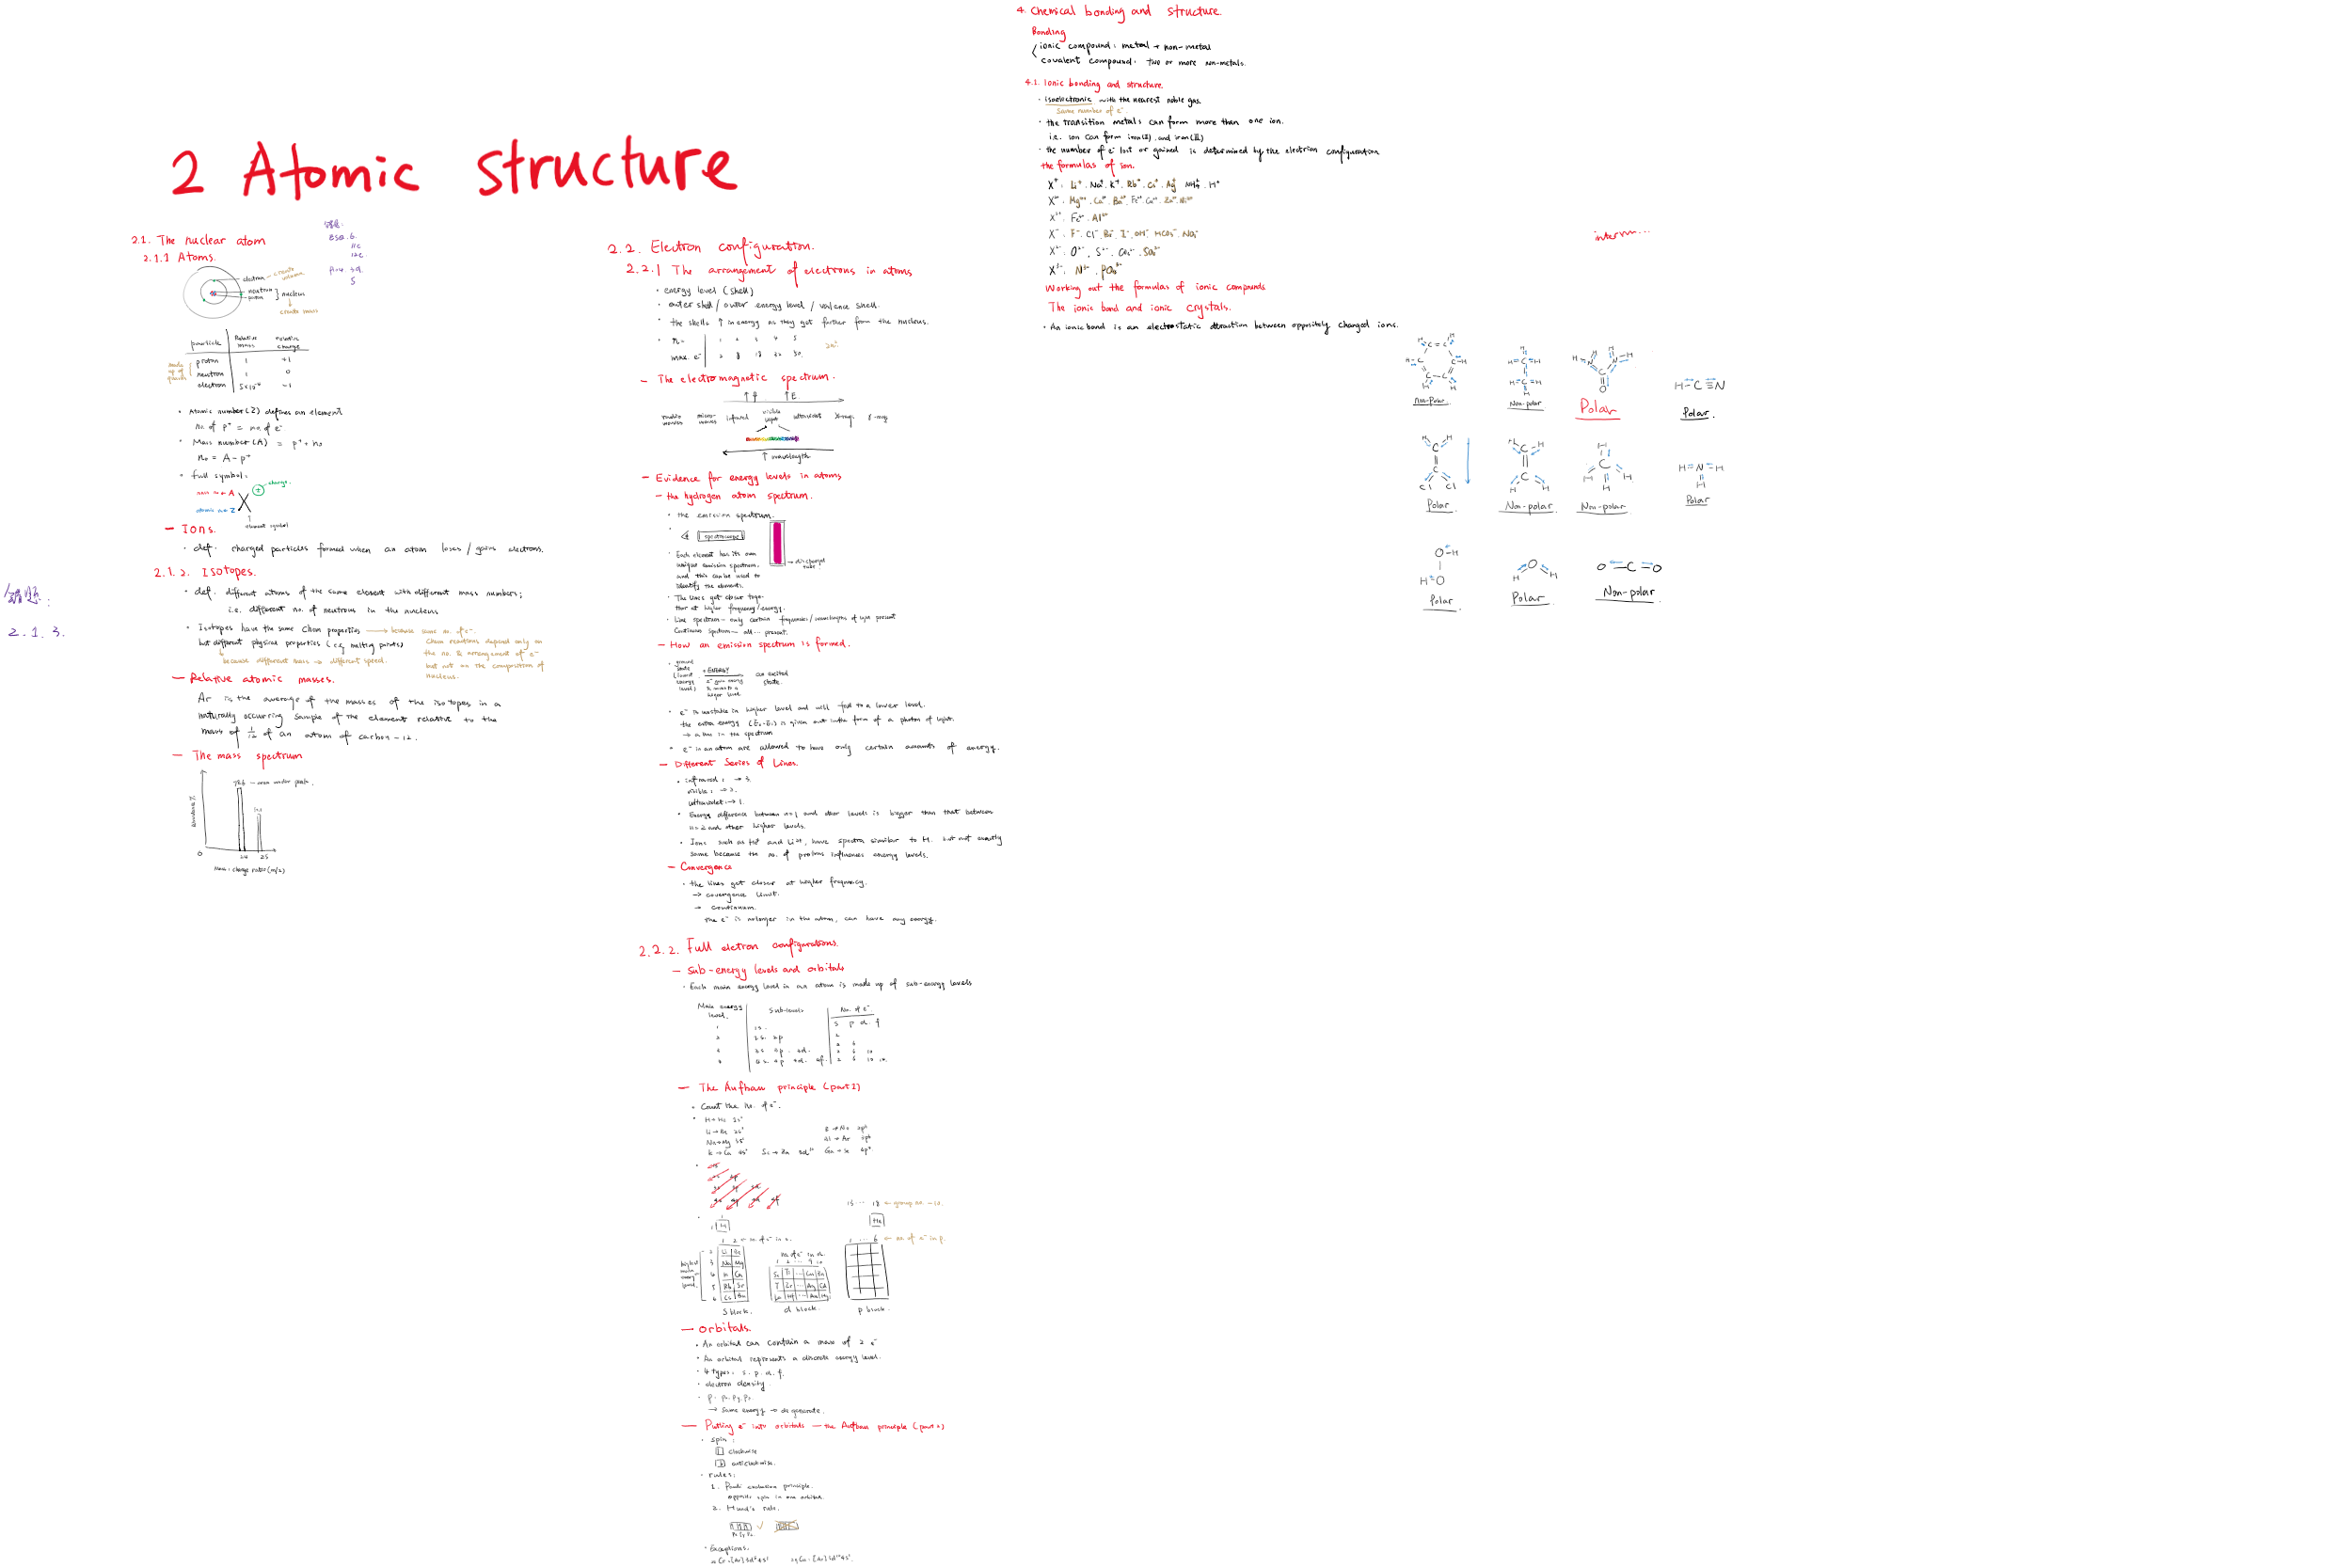 2 Atomic structure
2.1. The nuclear atom
2.1.1 Atoms.
electron - create volume.
neutron
proton
nucleus
create mass
particle Relative mass relative charge
proton 1 +1
neutron 1 0
electron 5×10⁻⁴ -1
made up of quarks
• Atomic number (Z) defines an element
no. of p⁺ = no. of e⁻
• Mass number (A) = p⁺ + n₀
n₀ = A - p⁺
• full symbol:
mass no ← A
charge.
atomic no ← Z
X
element symbol
- Ions.
• def. charged particles formed when an atom loses / gains electrons.
2.1.2. Isotopes.
错题:
2.1.3.
• def. different atoms of the same element with different mass numbers;
i.e. different no. of neutrons in the nucleus
• Isotopes have the same Chem properties → because same no. of e⁻.
but different physical properties (e.g. melting points)
because different mass → different speed.
Chem reactions depend only on
the no. & arrangement of e⁻
but not on the composition of
nucleus.
- Relative atomic masses.
Ar is the average of the masses of the isotopes in a
naturally occurring sample of the element relative to the
mass of 1/12 of an atom of carbon-12.
- The mass spectrum
78.6 - area under peak.
Abundance %
0 24 25
Mass : charge ratio (m/z)
2.2. Electron configuration.
2.2.1 The arrangement of electrons in atoms
• energy level (shell)
• outer shell / outer energy level / valence shell.
• the shells ↑ in energy as they get further from the nucleus.
• n= 1 2 3 4 5
max. e⁻ 2 8 18 32 50.
2n².
- The electromagnetic spectrum.
↑ f ↑ E
radio waves micro-waves infrared visible light ultraviolet X-rays γ-rays
↑ wavelength
- Evidence for energy levels in atoms
- the hydrogen atom spectrum.
• the emission spectrum.
spectroscope
discharge tube
• Each element has its own
unique emission spectrum.
and this can be used to
identify the element.
• The lines get closer toge-
ther at higher frequency/energy.
• Line spectrum - only certain frequencies/wavelengths of light present
Continuous spectrum - all... present.
- How an emission spectrum is formed.
• ground state (lowest energy level)
+ ENERGY
e⁻ gain energy & moves to a higher level
an excited state.
• e⁻ is unstable in higher level and will fall to a lower level.
the extra energy (E₂-E₁) is given out in the form of a photon of light.
→ a line in the spectrum
• e⁻ in an atom are allowed to have only certain amounts of energy.
- Different Series of Lines.
• infrared: → 3.
visible: → 2.
ultraviolet: → 1.
• Energy difference between n=1 and other levels is bigger than that between
n=2 and other higher levels.
• Ions such as He⁺ and Li²⁺, have spectra similar to H. but not exactly
same because the no. of protons influences energy levels.
- Convergence
• the lines get closer at higher frequency.
→ covergence limit.
→ Continuum.
the e⁻ is no longer in the atom, can have any energy.
2.2.2. Full eletron configurations.
- Sub-energy levels and orbitals
• Each main energy level in an atom is made up of sub-energy levels
Main energy level. Sub-levels No. of e⁻
s p d f
1 1s. 2
2 2s. 2p 2 6
3 3s 3p. 3d. 2 6 10
4 4s. 4p 4d. 4f. 2 6 10 14
- The Aufbau principle (part 1)
• Count the no. of e⁻.
15 ... 18 ← group no. -10.
H
He
1 2 ← no. of e⁻ in s.
no. of e⁻ in d.
1 ... 6 ← no. of e⁻ in p.
highest main energy level.
2 Li Be
3 Na Mg
4 K Ca
5 Rb Sr
6 Cs Ba
s block. d block. p block.
- Orbitals.
• An orbital can contain a max of 2 e⁻
• An orbital represents a discrete energy level.
• 4 types: s. p. d. f.
• electron density.
• p. px. py. pz.
→ same energy → degenerate.
- Putting e⁻ into orbitals - the Aufbau principle (part 2)
• spin:
clockwise
anticlockwise.
• rules:
1. Pauli exclusion principle.
opposite spin in one orbital.
2. Hund's rule.
px py pz
• Exceptions.
4. Chemical bonding and structure.
Bonding
ionic compound: metal + non-metal
covalent compound: two or more non-metals.
4.1. Ionic bonding and structure.
• isoelectronic with the nearest noble gas.
same number of e⁻.
• the transition metals can form more than one ion.
i.e. ion can form iron(II) and iron(III)
• the number of e⁻ lost or gained is determined by the electrion configuration
the formulas of ion.
X⁺. Li⁺. Na⁺. K⁺. Rb⁺. Cs⁺. Ag⁺ NH₄⁺. H⁺
X³⁺. Fe³⁺. Al³⁺
X³⁻. N³⁻. PO₄³⁻
Working out the formulas of ionic compounds
The ionic bond and ionic crystals.
• An ionic bond is an electrostatic attraction between oppositely charged ions.
Non-Polar.
Non-polar
Polar
H-C≡N
Polar.
Polar.
Non-polar.
Non-polar
H-N-H
H
Polar
O-H
H-O
Polar.
H O H
Polar.
O=C=O
Non-polar